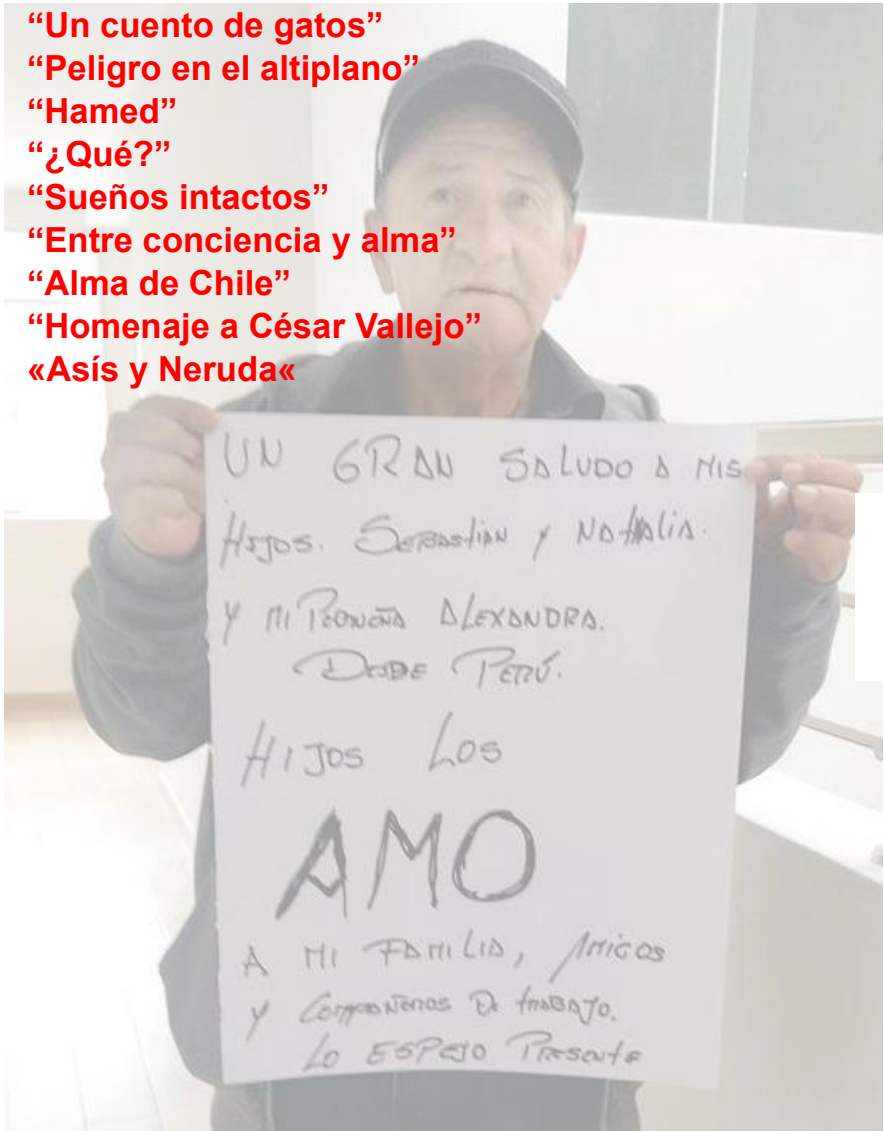 “Un cuento de gatos”
“Peligro en el altiplano”
“Hamed”
“¿Qué?”
“Sueños intactos”
“Entre conciencia y alma”
“Alma de Chile”
“Homenaje a César Vallejo”
«Asís y Neruda«
UN GRAN SALUDO A MIS
HIJOS. SEBASTIAN Y NATHALIA.
Y MI PEQUEÑA ALEXANDRA.
DESDE PERÚ.
HIJOS LOS
AMO
A MI FAMILIA, AMIGOS
Y COMPAÑEROS DE TRABAJO.
LO ESPEJO PRESENTE